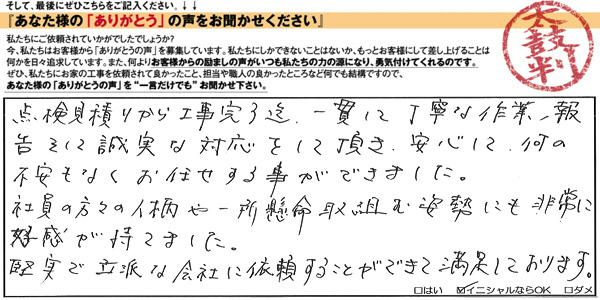 そして、最後にぜひこちらをご記入ください。↓↓↓
『あなた様の「ありがとう」の声をお聞かせください』
私たちにご依頼されていかがでしたでしょうか?
今、私たちはお客様から「ありがとうの声」を募集しています。私たちにしかできないことはないか、もっとお客様にして差し上げることは
何かを日々追求しています。また、何よりお客様からの励ましの声がいつも私たちの力の源になり、勇気付けてくれるのです。
ぜひ、私たちにお家の工事を依頼されて良かったこと、担当や職人の良かったところなど何でも結構ですので、
あなた様の「ありがとうの声」を“一言だけでも”お聞かせ下さい。
太鼓判
点検見積りから工事完了迄、一貫して丁寧な作業、報
告そして誠実な対応をして頂き、安心して、何の
不安もなくお任せする事ができました。
社員の方々の人柄や一所懸命取組む姿勢にも非常に
好感が持てました。
堅実で立派な会社に依頼することができて満足しております。
□はい ☑イニシャルならOK □ダメ